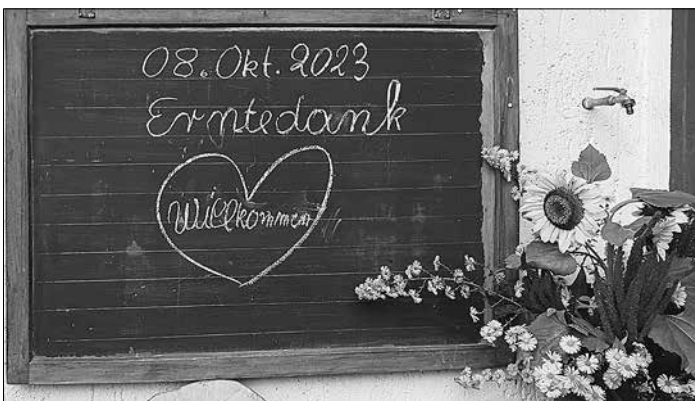 08. Okt. 2023
Erntedank
Willkommen